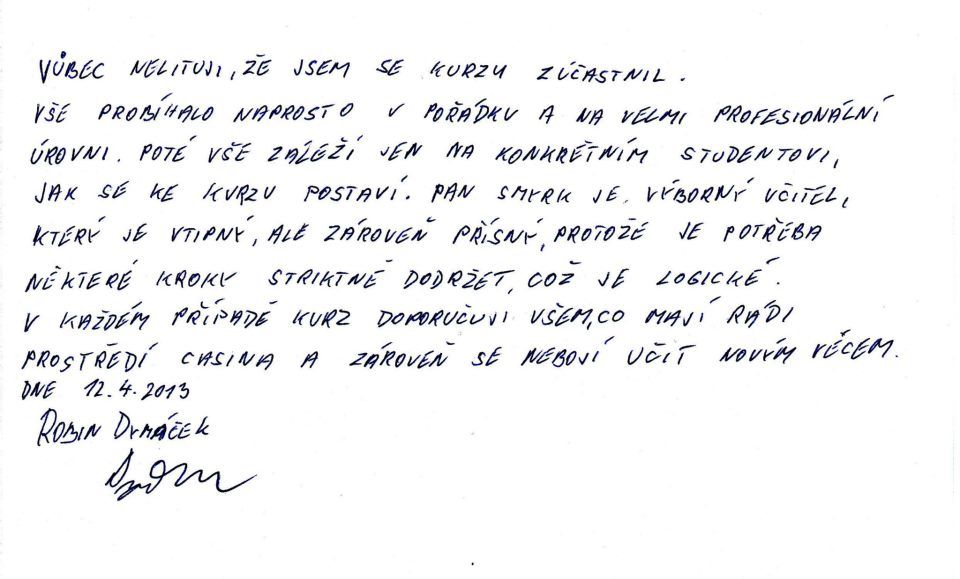 VŮBEC NELITUJI, ŽE JSEM SE KURZU ZÚČASTNIL.
VŠE PROBÍHALO NAPROSTO V POŘÁDKU A NA VELMI PROFESIONÁLNÍ
ÚROVNI. POTÉ VŠE ZÁLEŽÍ JEN NA KONKRÉTNÍM STUDENTOVI,
JAK SE KE KURZU POSTAVÍ. PAN SMYRK JE VÝBORNÝ UČITEL,
KTERÝ JE VTIPNÝ, ALE ZÁROVEŇ PŘÍSNÝ, PROTOŽE JE POTŘEBA
NĚKTERÉ KROKY STRIKTNĚ DODRŽET, COŽ JE LOGICKÉ.
V KAŽDÉM PŘÍPADĚ KURZ DOPORUČUJI VŠEM, CO MAJÍ RÁDI
PROSTŘEDÍ CASINA A ZÁROVEŇ SE NEBOJÍ UČIT NOVÝM VĚCEM.
DNE 12.4.2013
ROBIN